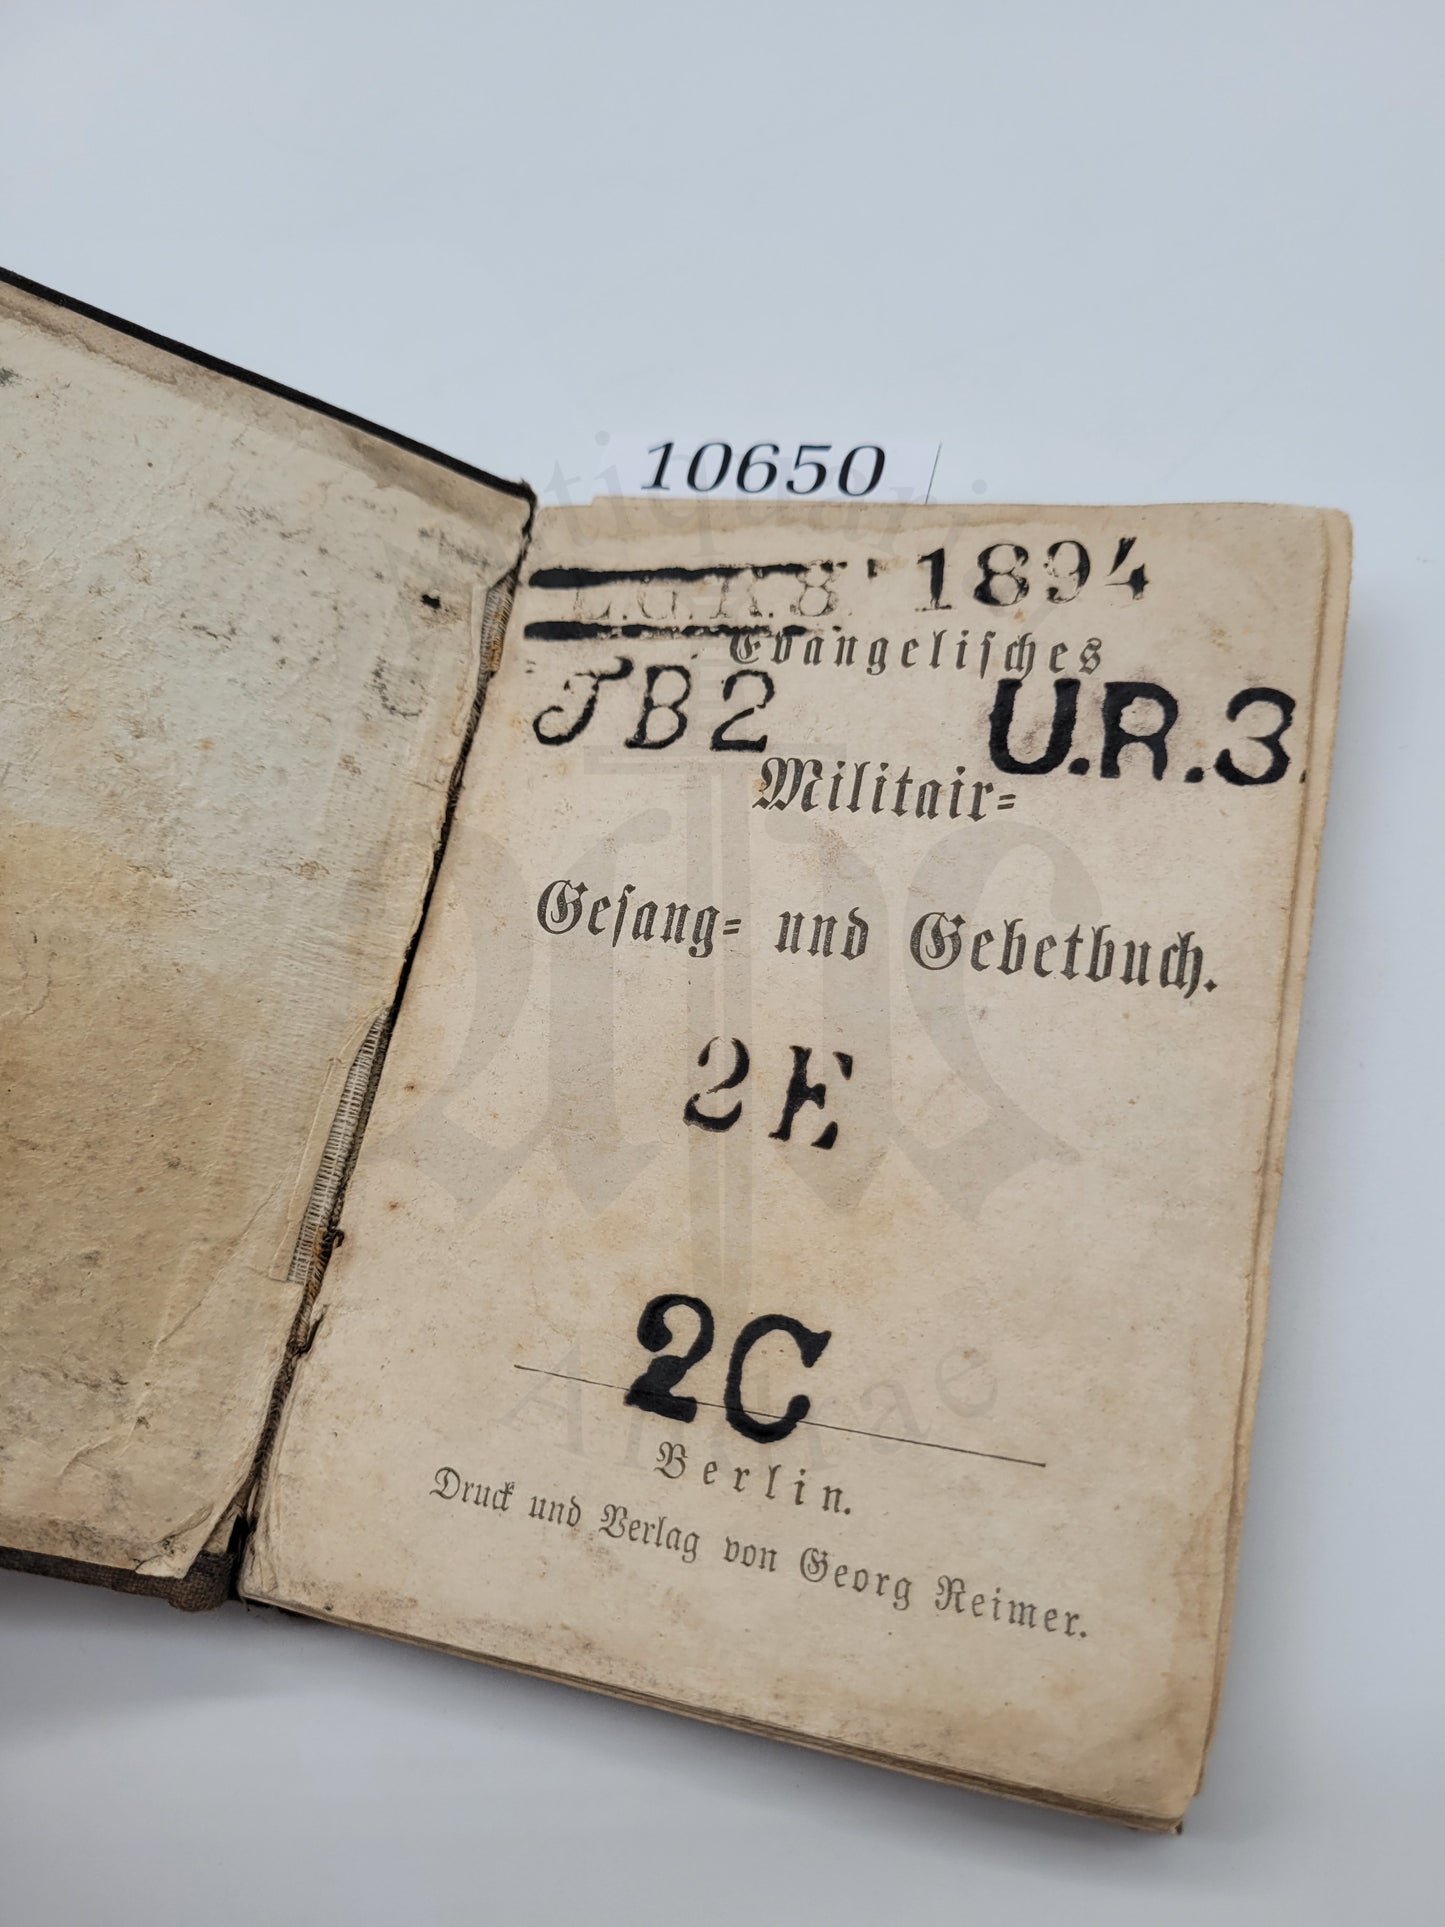 10650
L.G.K.8. 1894
Evangelisches
JB2 U.R.3.
Militair=
Gesang= und Gebetbuch.
2E
2C
Berlin.
Druck und Verlag von Georg Reimer.
Antiquari
Arturae